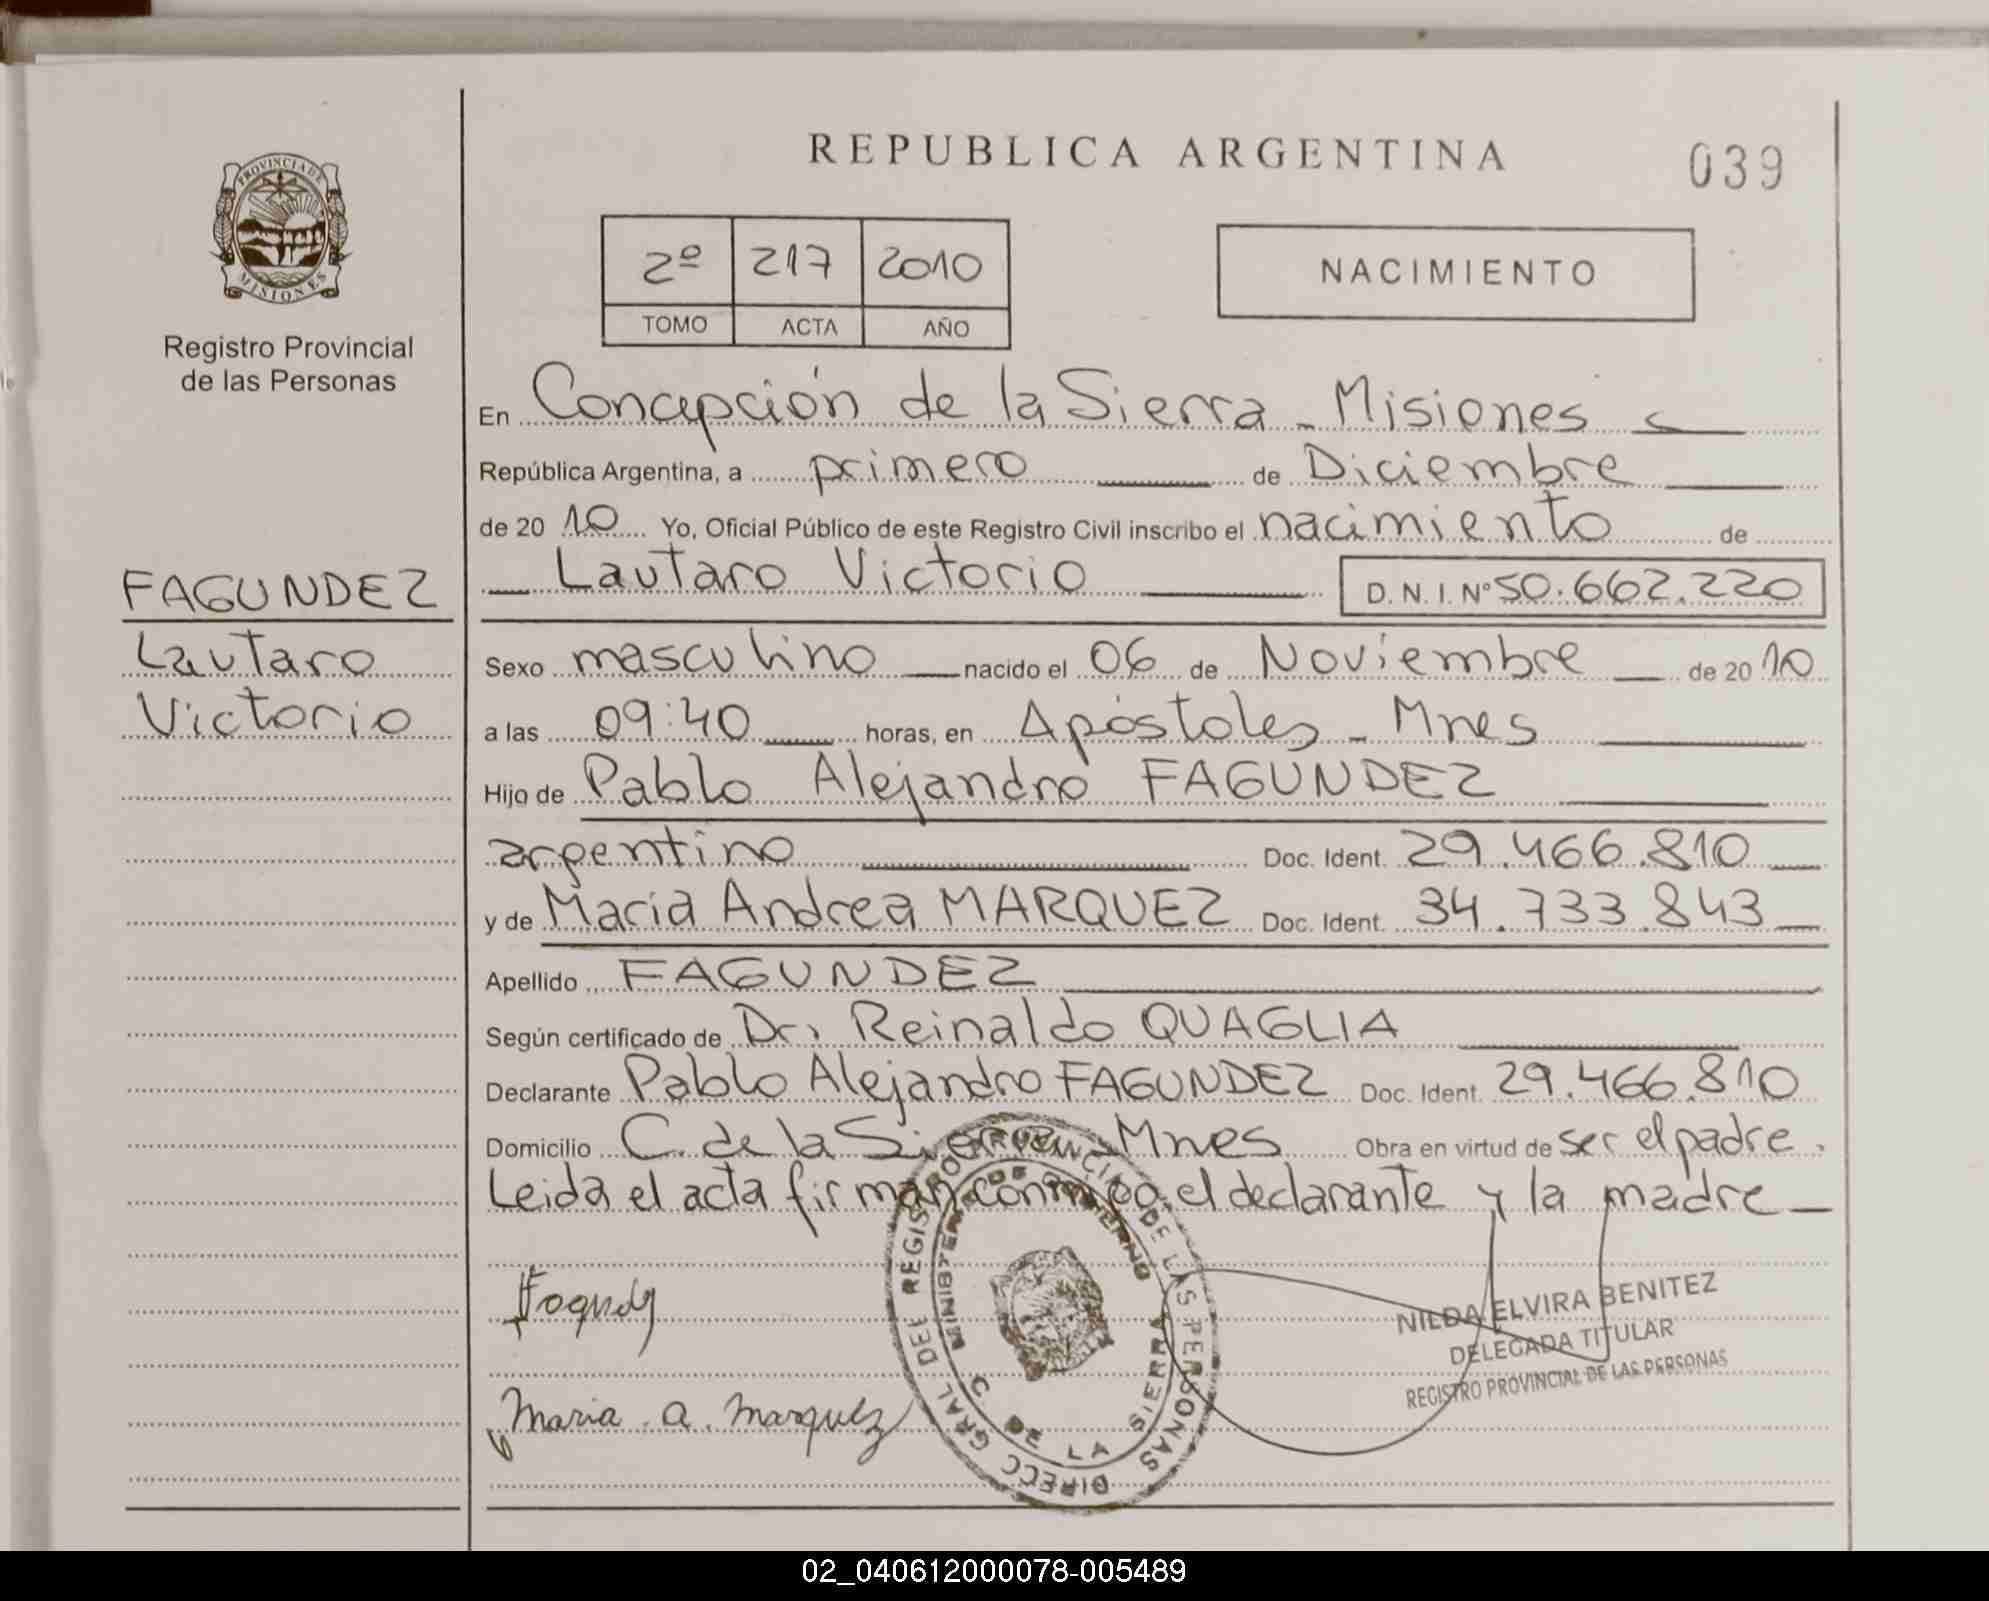 REPUBLICA ARGENTINA
039
PROVINCIA DE
MISIONES
Registro Provincial
de las Personas
2º 217 2010
TOMO ACTA AÑO
NACIMIENTO
En Concepción de la Sierra - Misiones
República Argentina, a primero de Diciembre
de 20 10 Yo, Oficial Público de este Registro Civil inscribo el nacimiento de
Lautaro Victorio D.N.I. Nº 50.662.220
FAGUNDEZ
Lautaro
Victorio
Sexo masculino nacido el 06 de Noviembre de 20 10
a las 09:40 horas, en Apóstoles - Mnes
Hijo de Pablo Alejandro FAGUNDEZ
argentino Doc. Ident. 29.466.810
y de Maria Andrea MARQUEZ Doc. Ident. 34.733.843
Apellido FAGUNDEZ
Según certificado de Dr. Reinaldo QUAGLIA
Declarante Pablo Alejandro FAGUNDEZ Doc. Ident. 29.466.810
Domicilio C. de la Sierra - Mnes Obra en virtud de ser el padre.
Leida el acta firman conmigo el declarante y la madre
Maria . A . Marquez
DIRECC GRAL DEL REGISTRO PROVINCIAL DE LAS PERSONAS
MINISTERIO DE GOBIERNO
C. DE LA SIERRA
NILDA ELVIRA BENITEZ
DELEGADA TITULAR
REGISTRO PROVINCIAL DE LAS PERSONAS
02_040612000078-005489